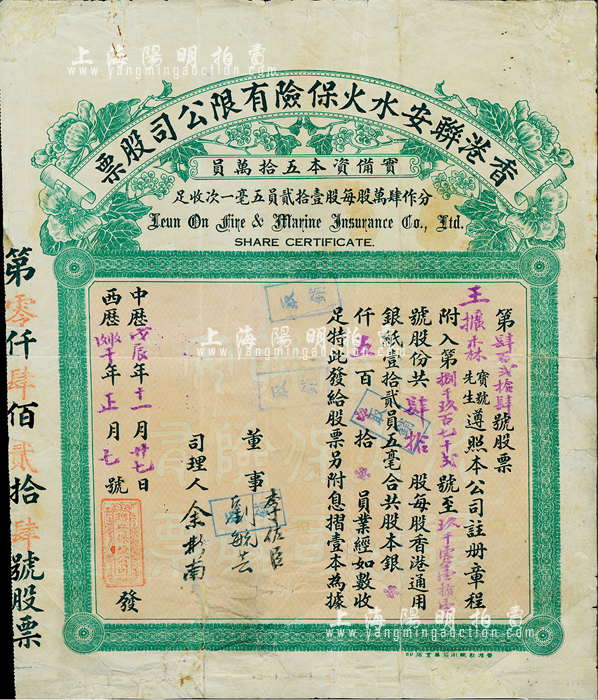 上海陽明拍賣
www.yangmingauction.com
香港聯安水火保險有限公司股票
實備資本五拾萬員
分作肆萬股每股壹拾貳員五毫一次收足
Leun On Fire & Marine Insurance Co., Ltd.
SHARE CERTIFICATE.
第肆百貳拾肆號股票
王擴森 寶號 先生 遵照本公司註册章程
附入第捌千玖百七十 號至玖千零壹拾
號股份共肆拾股每股香港通用
銀紙壹拾貳員五毫合共股本銀
仟五百零拾零員業經如數收
足特此發給股票另附息摺壹本為據
董事 李佐臣
劉毓芸
司理人 余彬南
中歷戊辰年十一月廿七日
西歷 年正月七號
發
第零仟肆佰貳拾肆號股票
註銷
上海陽明拍賣
www.yangmingauction.com
上海陽明拍賣
www.yangmingauction.com